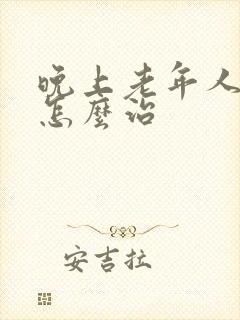 晚上老年人
怎麼治
安吉拉